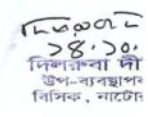 ১৪.১০.
দিলরুবা দী
উপ-ব্যবস্থাপ
বিসিক, নাটো